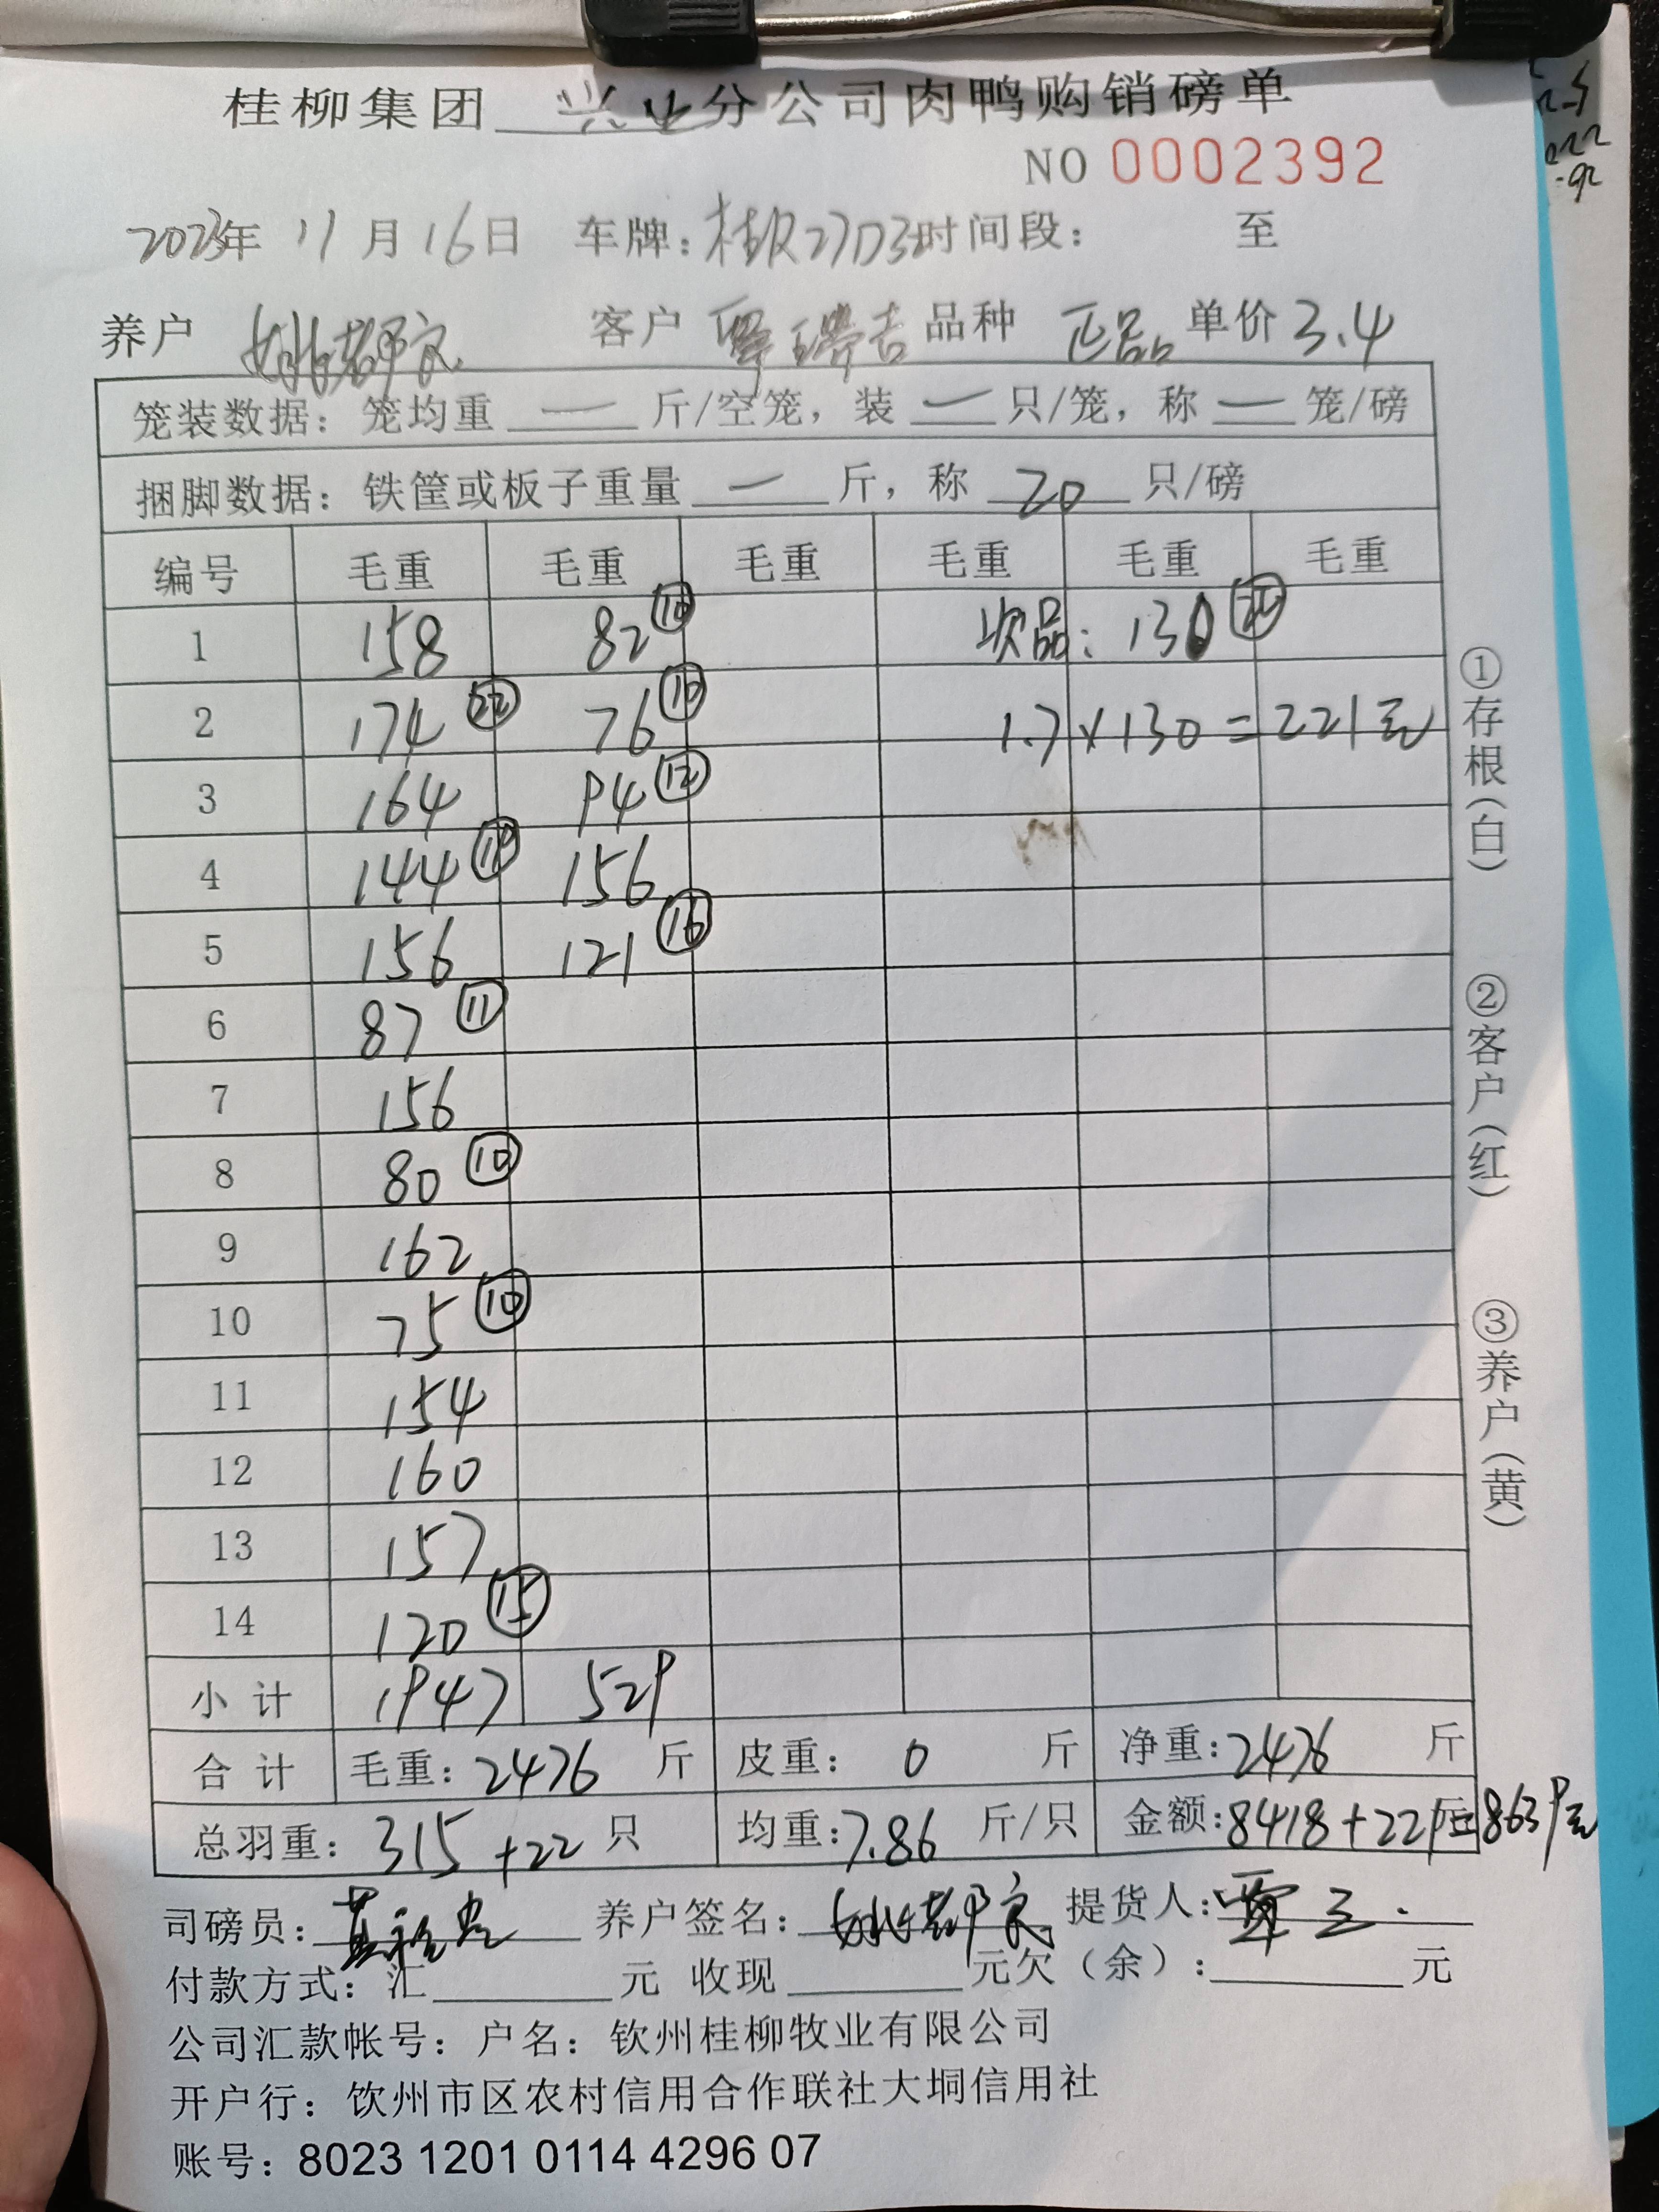 桂柳集团 兴业 分公司肉鸭购销磅单
NO 0002392
2023年 11月16日 车牌: 时间段: 至
养户 客户 覃瑞吉 品种 正品 单价 3.4
笼装数据: 笼均重 — 斤/空笼, 装 — 只/笼, 称 — 笼/磅
捆脚数据: 铁筐或板子重量 — 斤, 称 20 只/磅
编号 毛重 毛重 毛重 毛重 毛重 毛重
1 158 82 ⑩ 次品: 130
2 174 ㉒ 76 ⑩ 1.7×130=221元
3 164 94 ⑫
4 144 156
5 156 121 ⑯
6 87 ⑪
7 156
8 80 ⑩
9 162
10 75 ⑩
11 154
12 160
13 157
14 120 ⑮
小计 1947 529
合计 毛重: 2476 斤 皮重: 0 斤 净重: 2476 斤
总羽重: 315+22 只 均重: 7.86 斤/只 金额: 8418+221元=8639元
司磅员: 养户签名: 提货人:
付款方式: 汇 元 收现 元欠(余): 元
公司汇款帐号: 户名: 钦州桂柳牧业有限公司
开户行: 钦州市区农村信用合作联社大垌信用社
账号: 8023 1201 0114 4296 07
①存根(白)
②客户(红)
③养户(黄)